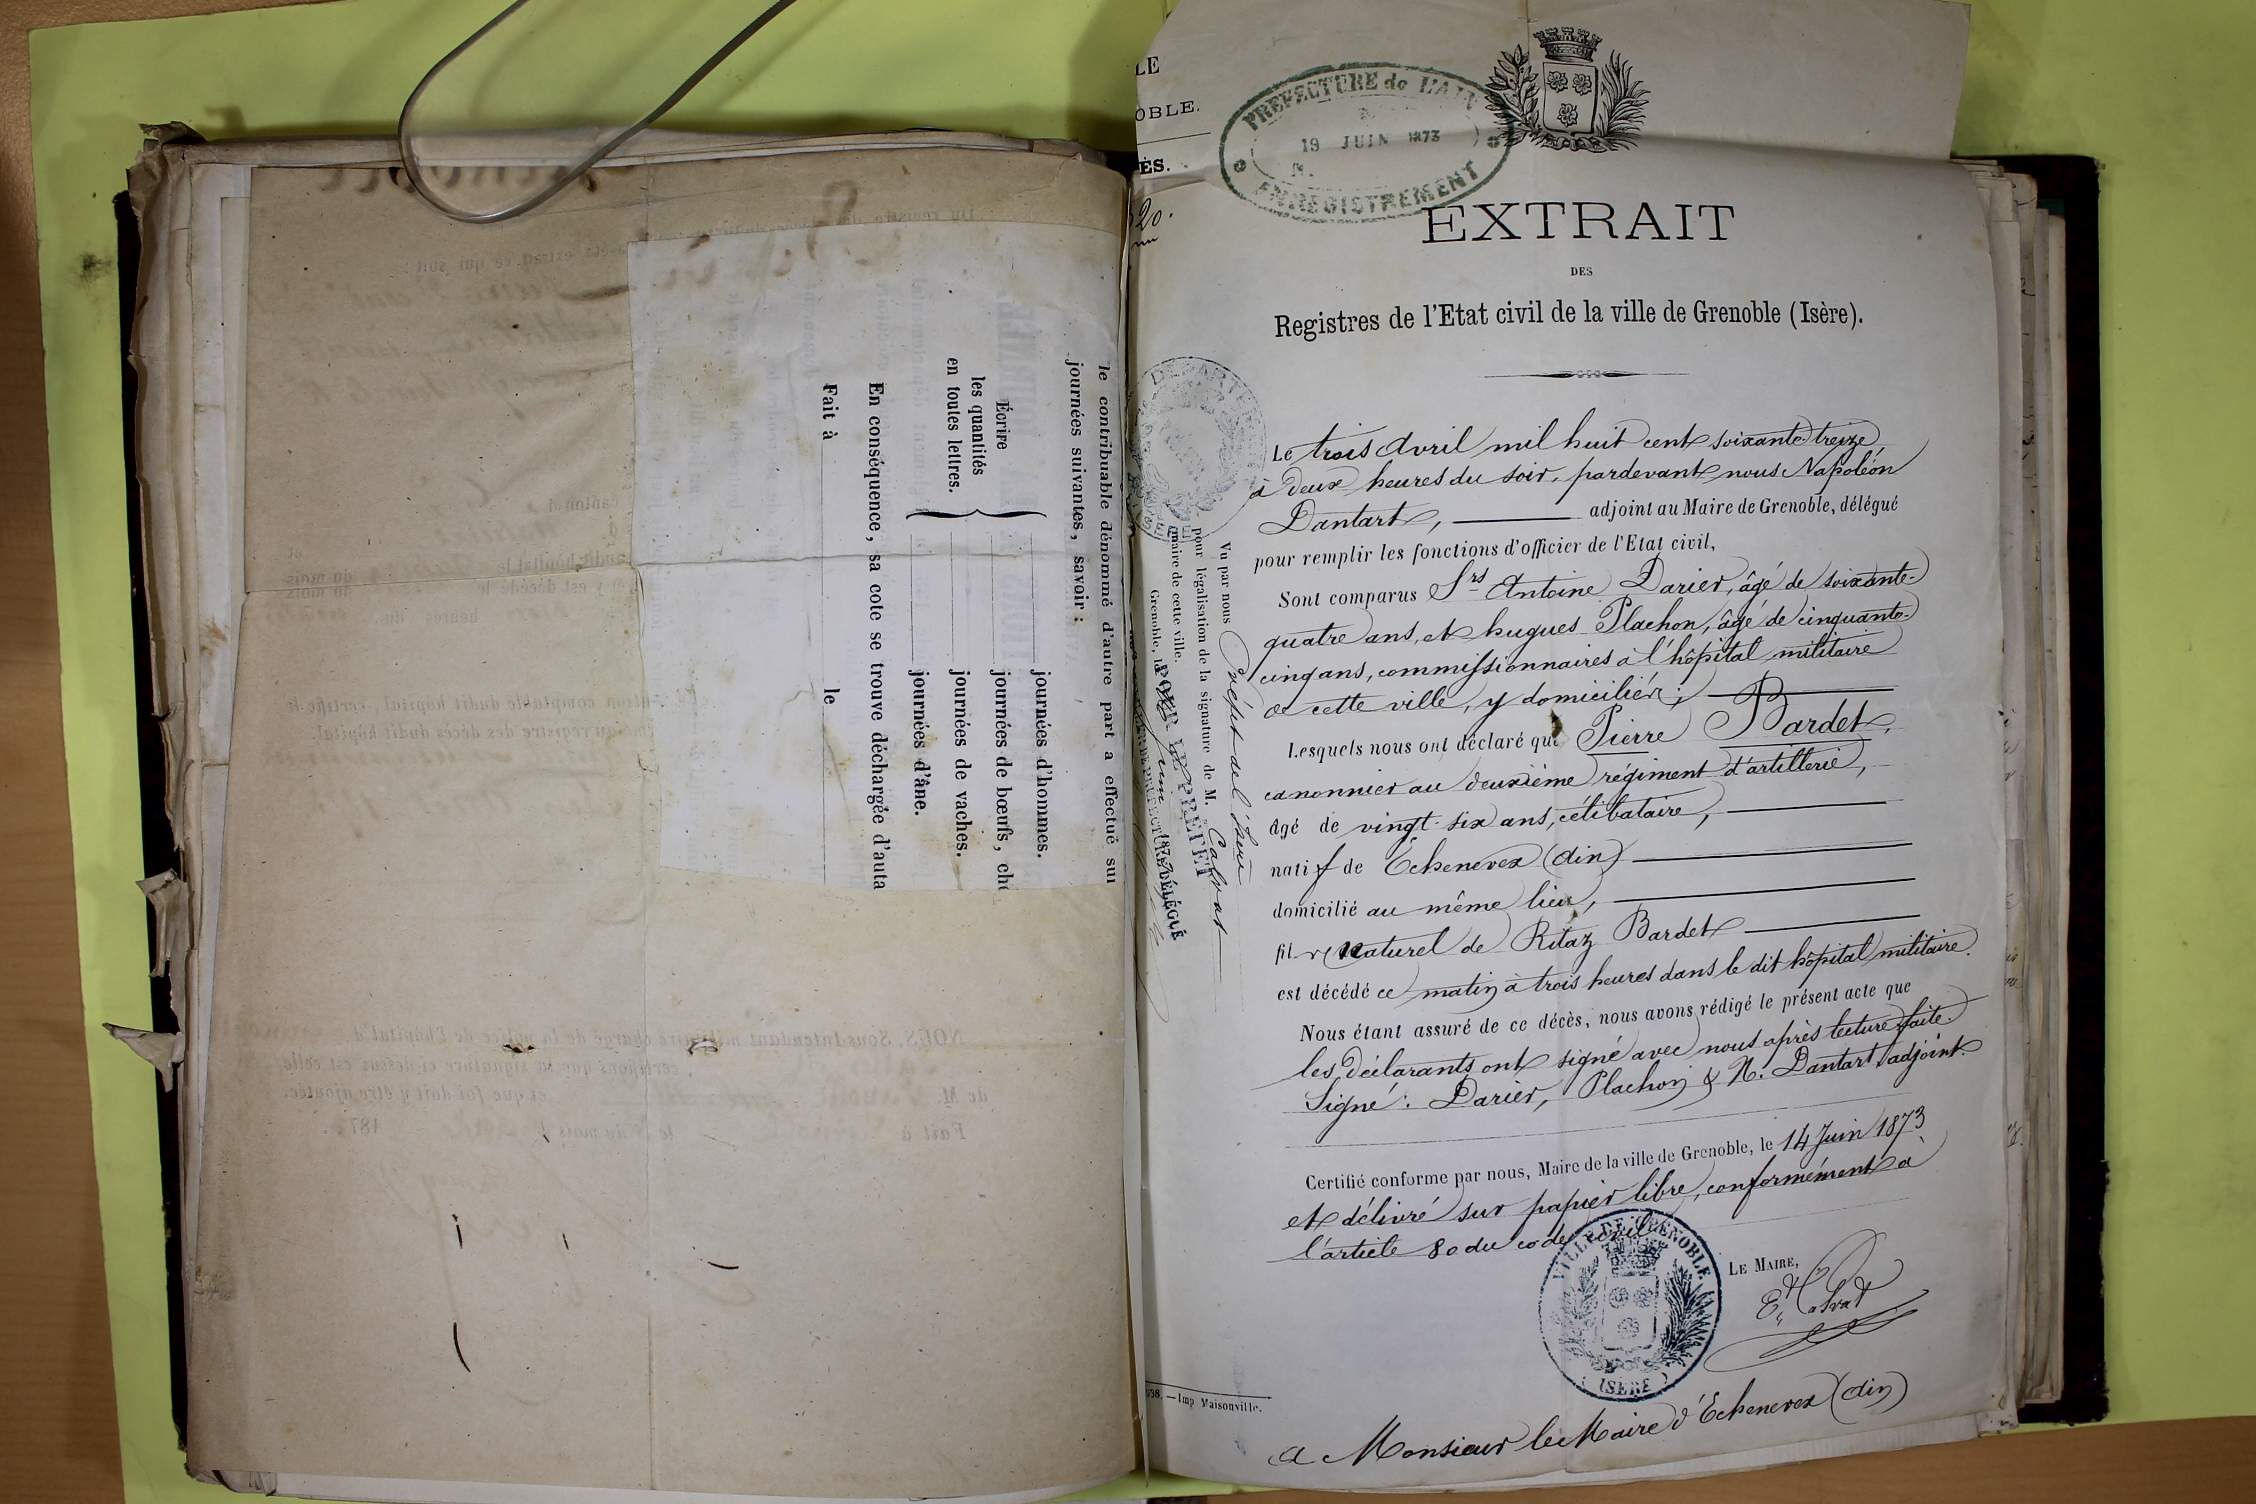 le contribuable dénommé d'autre part a effectué sur
journées suivantes, savoir :
Écrire
les quantités
en toutes lettres.
journées d'hommes.
journées de bœufs, che
journées de vaches.
journées d'âne.
En conséquence, sa cote se trouve déchargée d'auta
Fait à le
LE
OBLE.
ÈS.
20.
PREFECTURE de L'AIN
19 JUIN 1873
N.
ENREGISTREMENT
EXTRAIT
DES
Registres de l'Etat civil de la ville de Grenoble (Isère).
Le trois Avril mil huit cent soixante-treize
à deux heures du soir, pardevant nous Napoléon
Dantart, adjoint au Maire de Grenoble, délégué
pour remplir les fonctions d'officier de l'Etat civil,
Sont comparus Srs Antoine Darier, âgé de soixante-
quatre ans, et hugues Plachon, âgé de cinquante-
cinq ans, commissionnaires à l'hôpital militaire
de cette ville, y domiciliés;
Lesquels nous ont déclaré que Pierre Bardet,
canonnier au deuxième régiment d'artillerie,
âgé de vingt-six ans, célibataire,
natif de Echenevex (Ain)
domicilié au même lieu,
fils naturel de Ritaz Bardet
est décédé ce matin à trois heures dans le dit hôpital militaire.
Nous étant assuré de ce décès, nous avons rédigé le présent acte que
les déclarants ont signé avec nous après lecture faite.
Signé : Darier, Plachon & N. Dantart adjoint.
Certifié conforme par nous, Maire de la ville de Grenoble, le 14 Juin 1873
et délivré sur papier libre, conformément à
l'article 80 du code civil
VILLE DE GRENOBLE
(ISÈRE)
LE MAIRE,
A Monsieur le Maire d'Echenevex (Ain)
Vu par nous Préfet de l'Isère
pour légalisation de la signature de M. Calvat
maire de cette ville.
Grenoble, le
POUR LE PRÉFET
DE PRÉFECTURE DÉLÉGUÉ
Imp Maisonville.